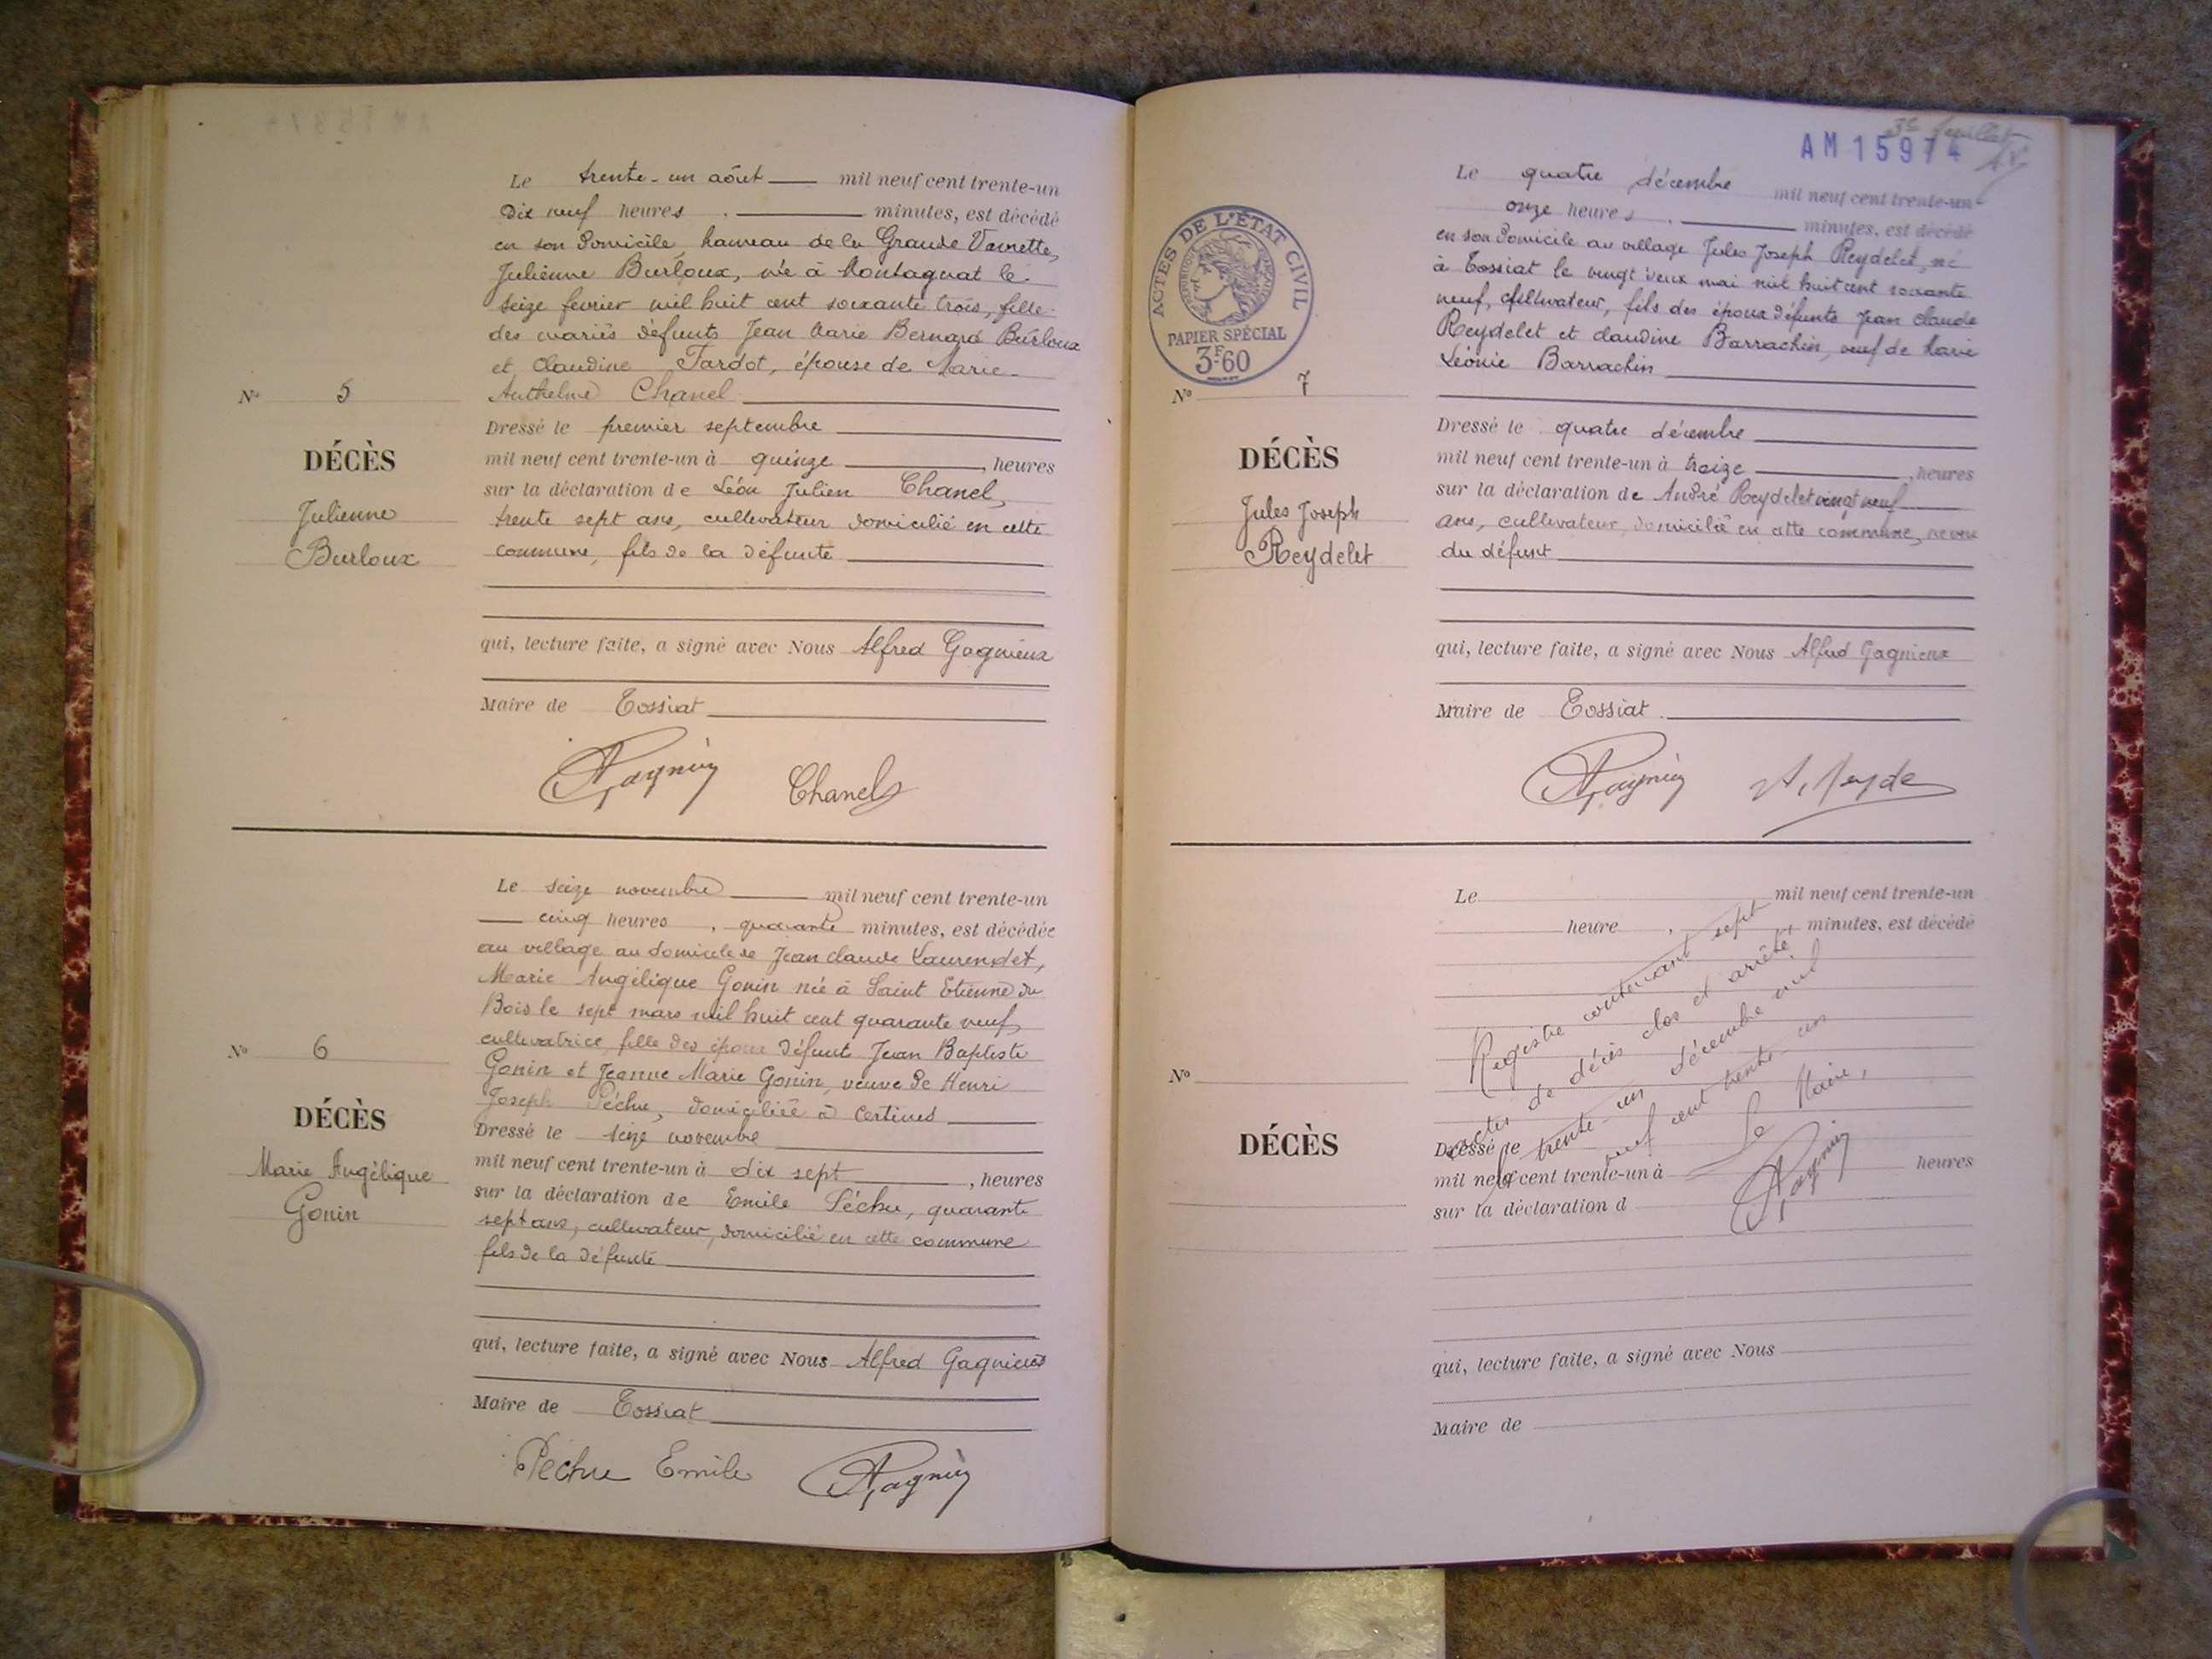 Le trente-un août mil neuf cent trente-un
Dix neuf heures . minutes, est décédé
en son domicile hameau de la Grande Vavrette,
Julienne Burloux, née à Montagnat le
seize fevrier mil huit cent soixante trois, fille
des mariés défunts Jean Marie Bernard Burloux
et Claudine Tardot, épouse de Marie
Anthelme Chanel
Nº 5
DÉCÈS
Julienne
Burloux
Dressé le premier septembre
mil neuf cent trente-un à quinze , heures
sur la déclaration de Léon Julien Chanel,
trente sept ans, cultivateur domicilié en cette
commune, fils de la défunte
qui, lecture faite, a signé avec Nous Alfred Gagnieux
Maire de Tossiat
Chanel
Le seize novembre mil neuf cent trente-un
cinq heures , quarante minutes, est décédée
au village au domicile de Jean Claude Laurendet,
Marie Angélique Gonin née à Saint Etienne du
Bois le sept mars mil huit cent quarante neuf
cultivatrice, fille des époux défunts Jean Baptiste
Gonin et Jeanne Marie Gonin, veuve de Henri
Joseph Péchu, domiciliée à Certines
Nº 6
DÉCÈS
Marie Angélique
Gonin
Dressé le seize novembre
mil neuf cent trente-un à dix sept , heures
sur la déclaration de Emile Péchu, quarante
sept ans, cultivateur, domicilié en cette commune
fils de la défunte
qui, lecture faite, a signé avec Nous Alfred Gagnieux
Maire de Tossiat
Péchu Emile
3e feuillet
AM 15974
ACTES DE L'ÉTAT CIVIL
PAPIER SPÉCIAL
3F60
Le quatre décembre mil neuf cent trente-un
onze heures . minutes, est décédé
en son domicile au village Jules Joseph Reydelet, né
à Tossiat le vingt deux mai mil huit cent soixante
neuf, cultivateur, fils des époux défunts Jean Claude
Reydelet et Claudine Barrachin, veuf de Marie
Léonie Barrachin
Nº 7
DÉCÈS
Jules Joseph
Reydelet
Dressé le quatre décembre
mil neuf cent trente-un à treize , heures
sur la déclaration de André Reydelet vingt neuf
ans, cultivateur, domicilié en cette commune, neveu
du défunt
qui, lecture faite, a signé avec Nous Alfred Gagnieux
Maire de Tossiat
Le mil neuf cent trente-un
heure , minutes, est décédé
Registre contenant sept
actes de décès clos et arrêté
le trente-un décembre mil
neuf cent trente-un
Le Maire,
Nº
DÉCÈS
Dressé le
mil neuf cent trente-un à heures
sur la déclaration d
qui, lecture faite, a signé avec Nous
Maire de